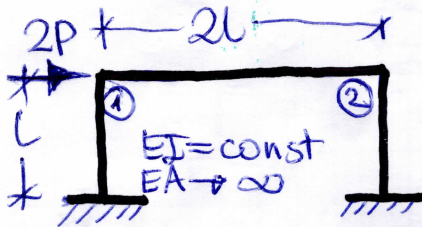 2P
2l
l
1
2
EI=const
EA→∞